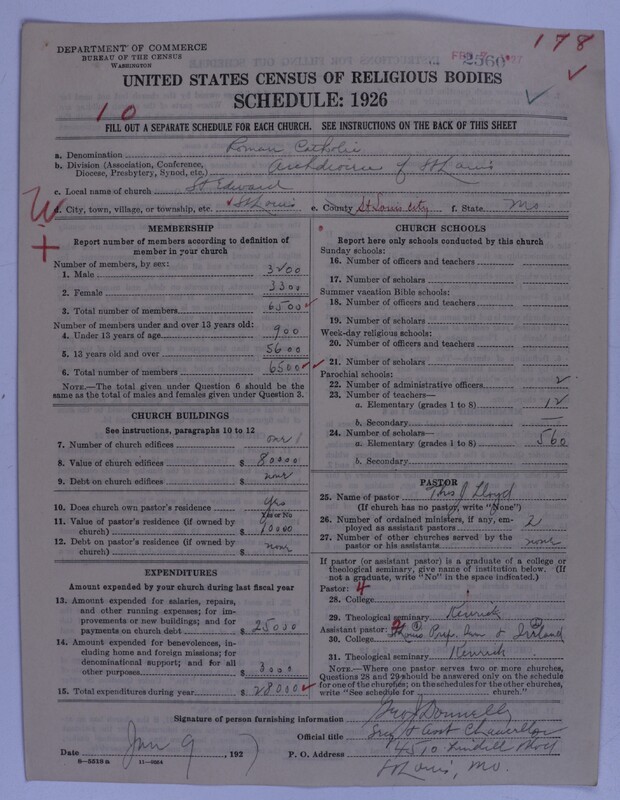 DEPARTMENT OF COMMERCE
BUREAU OF THE CENSUS
WASHINGTON
2560
178
UNITED STATES CENSUS OF RELIGIOUS BODIES
SCHEDULE: 1926
10
FILL OUT A SEPARATE SCHEDULE FOR EACH CHURCH. SEE INSTRUCTIONS ON THE BACK OF THIS SHEET
a. Denomination Roman Catholic
b. Division (Association, Conference, Diocese, Presbytery, Synod, etc.) Archdiocese of St Louis
c. Local name of church St Edward
d. City, town, village, or township, etc. St Louis e. County St Louis City f. State Mo
W
MEMBERSHIP
Report number of members according to definition of
member in your church
Number of members, by sex:
1. Male 3200
2. Female 3300
3. Total number of members 6500
Number of members under and over 13 years old:
4. Under 13 years of age 900
5. 13 years old and over 5600
6. Total number of members 6500
NOTE.—The total given under Question 6 should be the
same as the total of males and females given under Question 3.
CHURCH BUILDINGS
See instructions, paragraphs 10 to 12
7. Number of church edifices one 1
8. Value of church edifices $ 80000
9. Debt on church edifices $ none
10. Does church own pastor's residence yes
Yes or No
11. Value of pastor's residence (if owned by
church) $ 90000
12. Debt on pastor's residence (if owned by
church) $ none
EXPENDITURES
Amount expended by your church during last fiscal year
13. Amount expended for salaries, repairs,
and other running expenses; for im-
provements or new buildings; and for
payments on church debt $ 25000
14. Amount expended for benevolences, in-
cluding home and foreign missions; for
denominational support; and for all
other purposes $ 3000
15. Total expenditures during year $ 28000
CHURCH SCHOOLS
Report here only schools conducted by this church
Sunday schools:
16. Number of officers and teachers
17. Number of scholars
Summer vacation Bible schools:
18. Number of officers and teachers
19. Number of scholars
Week-day religious schools:
20. Number of officers and teachers
21. Number of scholars
Parochial schools:
22. Number of administrative officers 2
23. Number of teachers—
a. Elementary (grades 1 to 8) 12
b. Secondary —
24. Number of scholars—
a. Elementary (grades 1 to 8) 560
b. Secondary
PASTOR
25. Name of pastor Thos J Lloyd
(If church has no pastor, write "None")
26. Number of ordained ministers, if any, em-
ployed as assistant pastors 2
27. Number of other churches served by the
pastor or his assistants none
If pastor (or assistant pastor) is a graduate of a college or
theological seminary, give name of institution below. (If
not a graduate, write "No" in the space indicated.)
Pastor:
28. College
29. Theological seminary Kenrick
Assistant pastor:
30. College St Louis Prep. Sem & Ireland
31. Theological seminary Kenrick
NOTE.—Where one pastor serves two or more churches,
Questions 28 and 29 should be answered only on the schedule
for one of the churches; on the schedules for the other churches,
write "See schedule for church."
Signature of person furnishing information Geo J Donnelly
Official title Secy & Asst Chancellor
Date Jan 9, 1927 P. O. Address 4510 Lindell Blvd
St Louis, Mo.
8—5510 a